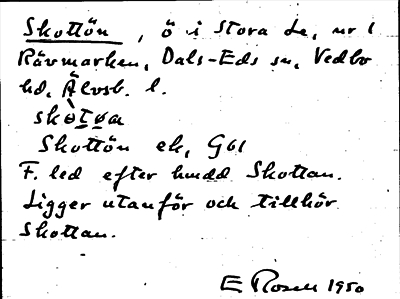 Skottön, ö i Stora Le, nr 1
Rävmarken, Dals-Eds sn, Vedbo
hd, Älvsb. l.
Skottön ek, G61
F. led efter hmdd Skottan.
Ligger utanför och tillhör
Skottan.
E Rosell 1950